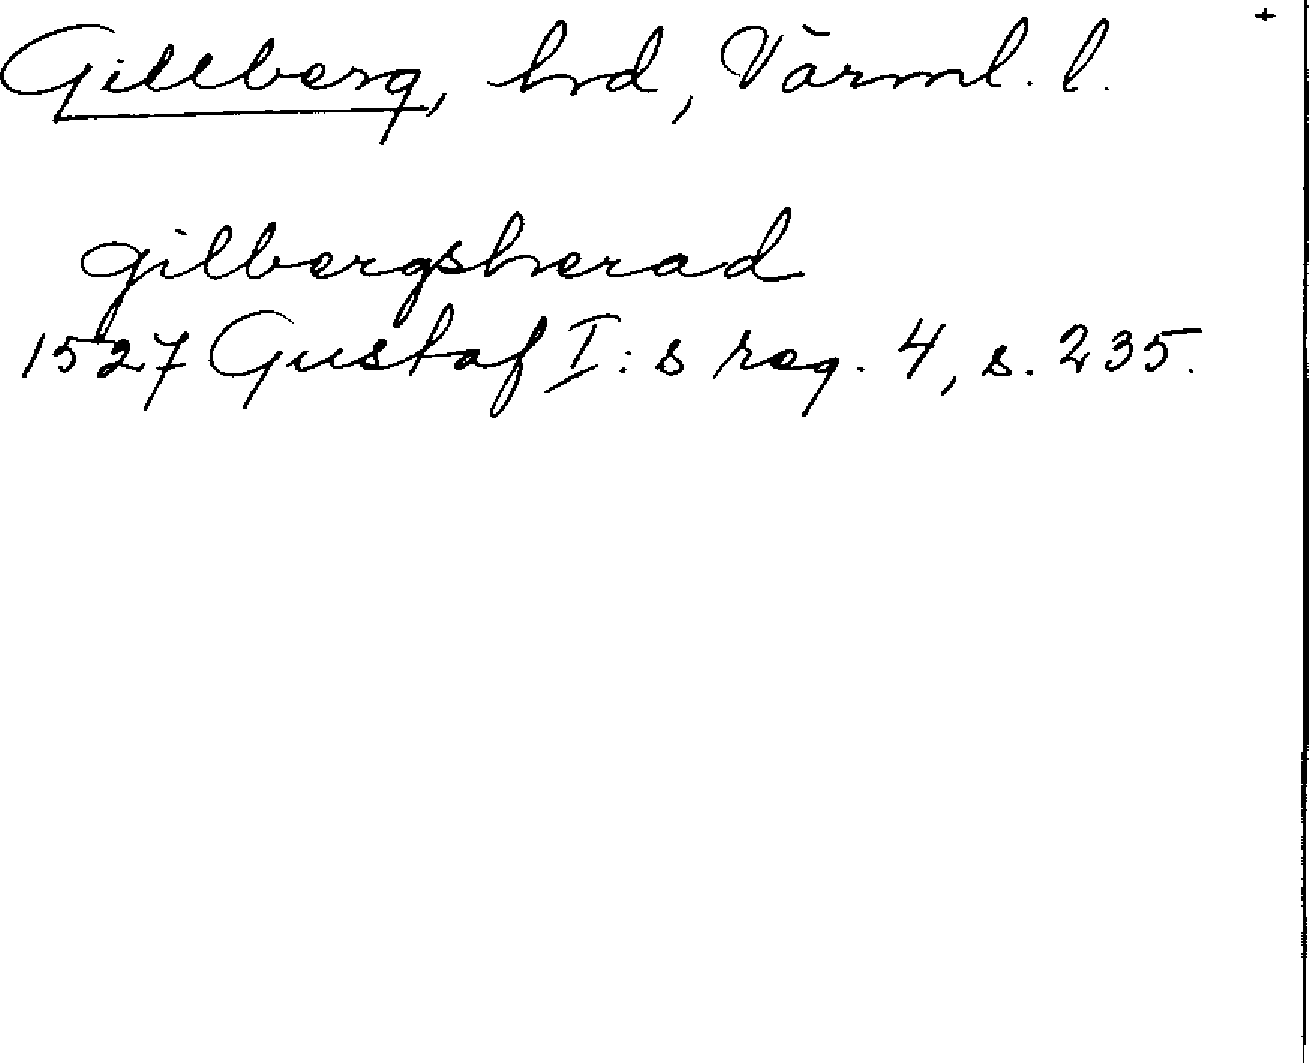 +
Gillberg, hrd, Värml. l.
gilbergsherad
1527 Gustaf I: s reg. 4, s. 235.